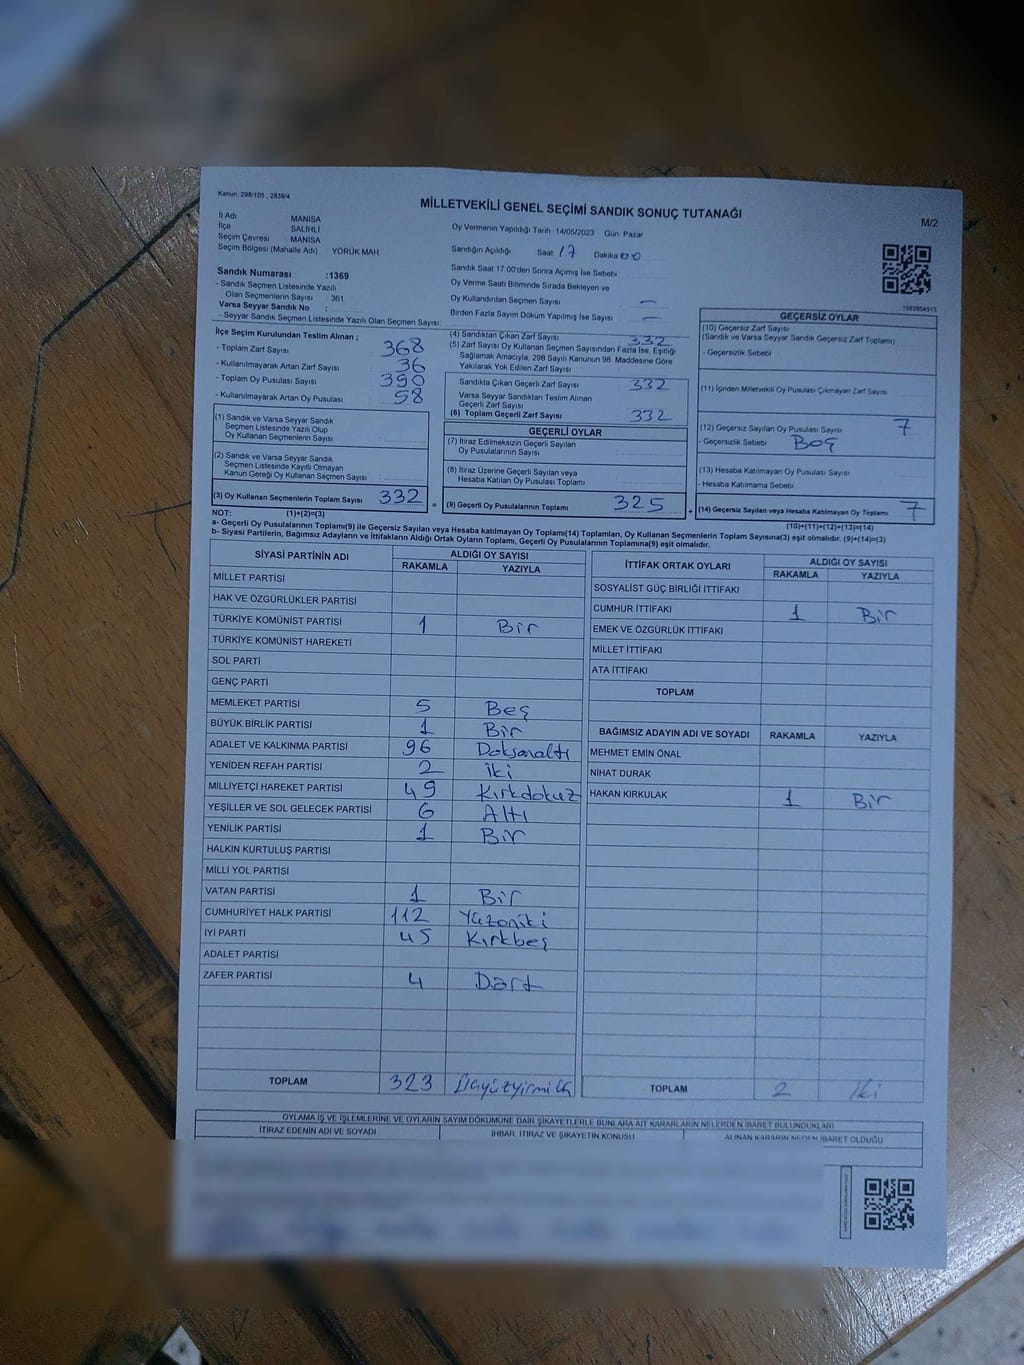 Kanun: 298/105 , 2839/4
MİLLETVEKİLİ GENEL SEÇİMİ SANDIK SONUÇ TUTANAĞI
M/2
İl Adı MANİSA
İlçe SALİHLİ
Seçim Çevresi MANİSA
Seçim Bölgesi (Mahalle Adı) YÖRÜK MAH
Oy Vermenin Yapıldığı Tarih :14/05/2023 Gün: Pazar
Sandığın Açıldığı Saat 17 Dakika 00
Sandık Saat 17.00'den Sonra Açımış İse Sebebi
Oy Verme Saati Bitiminde Sırada Bekleyen ve
Oy Kullandırılan Seçmen Sayısı —
Birden Fazla Sayım Döküm Yapılmış İse Sayısı —
Sandık Numarası :1369
- Sandık Seçmen Listesinde Yazılı
Olan Seçmenlerin Sayısı : 361
Varsa Seyyar Sandık No :
- Seyyar Sandık Seçmen Listesinde Yazılı Olan Seçmen Sayısı:
İlçe Seçim Kurulundan Teslim Alınan ;
- Toplam Zarf Sayısı 368
- Kullanılmayarak Artan Zarf Sayısı 36
- Toplam Oy Pusulası Sayısı 390
- Kullanılmayarak Artan Oy Pusulası 58
(4) Sandıktan Çıkan Zarf Sayısı 332
(5) Zarf Sayısı Oy Kullanan Seçmen Sayısından Fazla İse, Eşitliği
Sağlamak Amacıyla, 298 Sayılı Kanunun 98. Maddesine Göre
Yakılarak Yok Edilen Zarf Sayısı
Sandıkta Çıkan Geçerli Zarf Sayısı 332
Varsa Seyyar Sandıktan Teslim Alınan
Geçerli Zarf Sayısı
(6) Toplam Geçerli Zarf Sayısı 332
(1) Sandık ve Varsa Seyyar Sandık
Seçmen Listesinde Yazılı Olup
Oy Kullanan Seçmenlerin Sayısı
(2) Sandık ve Varsa Seyyar Sandık
Seçmen Listesinde Kayıtlı Olmayan
Kanun Gereği Oy Kullanan Seçmen Sayısı
(3) Oy Kullanan Seçmenlerin Toplam Sayısı 332 =
GEÇERLİ OYLAR
(7) İtiraz Edilmeksizin Geçerli Sayılan
Oy Pusulalarının Sayısı
(8) İtiraz Üzerine Geçerli Sayılan veya
Hesaba Katılan Oy Pusulası Toplamı
(9) Geçerli Oy Pusulalarının Toplamı 325 +
GEÇERSİZ OYLAR
(10) Geçersiz Zarf Sayısı
(Sandık ve Varsa Seyyar Sandık Geçersiz Zarf Toplamı)
- Geçersizlik Sebebi
(11) İçinden Milletvekili Oy Pusulası Çıkmayan Zarf Sayısı
(12) Geçersiz Sayılan Oy Pusulası Sayısı 7
- Geçersizlik Sebebi Boş
(13) Hesaba Katılmayan Oy Pusulası Sayısı
- Hesaba Katılmama Sebebi
(14) Geçersiz Sayılan veya Hesaba Katılmayan Oy Toplamı 7
NOT: (1)+(2)=(3)
(10)+(11)+(12)+(13)=(14)
a- Geçerli Oy Pusulalarının Toplamı(9) ile Geçersiz Sayılan veya Hesaba katılmayan Oy Toplamı(14) Toplamları, Oy Kullanan Seçmenlerin Toplam Sayısına(3) eşit olmalıdır. (9)+(14)=(3)
b- Siyasi Partilerin, Bağımsız Adayların ve İttifakların Aldığı Ortak Oyların Toplamı, Geçerli Oy Pusulalarının Toplamına(9) eşit olmalıdır.
SİYASİ PARTİNİN ADI ALDIĞI OY SAYISI
RAKAMLA YAZIYLA
MİLLET PARTİSİ
HAK VE ÖZGÜRLÜKLER PARTİSİ
TÜRKİYE KOMÜNİST PARTİSİ 1 Bir
TÜRKİYE KOMÜNİST HAREKETİ
SOL PARTİ
GENÇ PARTİ
MEMLEKET PARTİSİ 5 Beş
BÜYÜK BİRLİK PARTİSİ 1 Bir
ADALET VE KALKINMA PARTİSİ 96 Doksanaltı
YENİDEN REFAH PARTİSİ 2 iki
MİLLİYETÇİ HAREKET PARTİSİ 49 Kırkdokuz
YEŞİLLER VE SOL GELECEK PARTİSİ 6 Altı
YENİLİK PARTİSİ 1 Bir
HALKIN KURTULUŞ PARTİSİ
MİLLİ YOL PARTİSİ
VATAN PARTİSİ 1 Bir
CUMHURİYET HALK PARTİSİ 112 Yüzoniki
İYİ PARTİ 45 Kırkbeş
ADALET PARTİSİ
ZAFER PARTİSİ 4 Dört
TOPLAM 323
İTTİFAK ORTAK OYLARI ALDIĞI OY SAYISI
RAKAMLA YAZIYLA
SOSYALİST GÜÇ BİRLİĞİ İTTİFAKI
CUMHUR İTTİFAKI 1 Bir
EMEK VE ÖZGÜRLÜK İTTİFAKI
MİLLET İTTİFAKI
ATA İTTİFAKI
TOPLAM
BAĞIMSIZ ADAYIN ADI VE SOYADI RAKAMLA YAZIYLA
MEHMET EMİN ÖNAL
NİHAT DURAK
HAKAN KIRKULAK 1 Bir
TOPLAM 2 İki
OYLAMA İŞ VE İŞLEMLERİNE VE OYLARIN SAYIM DÖKÜMÜNE DAİR ŞİKAYETLERLE BUNLARA AİT KARARLARIN NELERDEN İBARET BULUNDUKLARI
İTİRAZ EDENİN ADI VE SOYADI İHBAR, İTİRAZ VE ŞİKAYETİN KONUSU ALINAN KARARIN NEDEN İBARET OLDUĞU